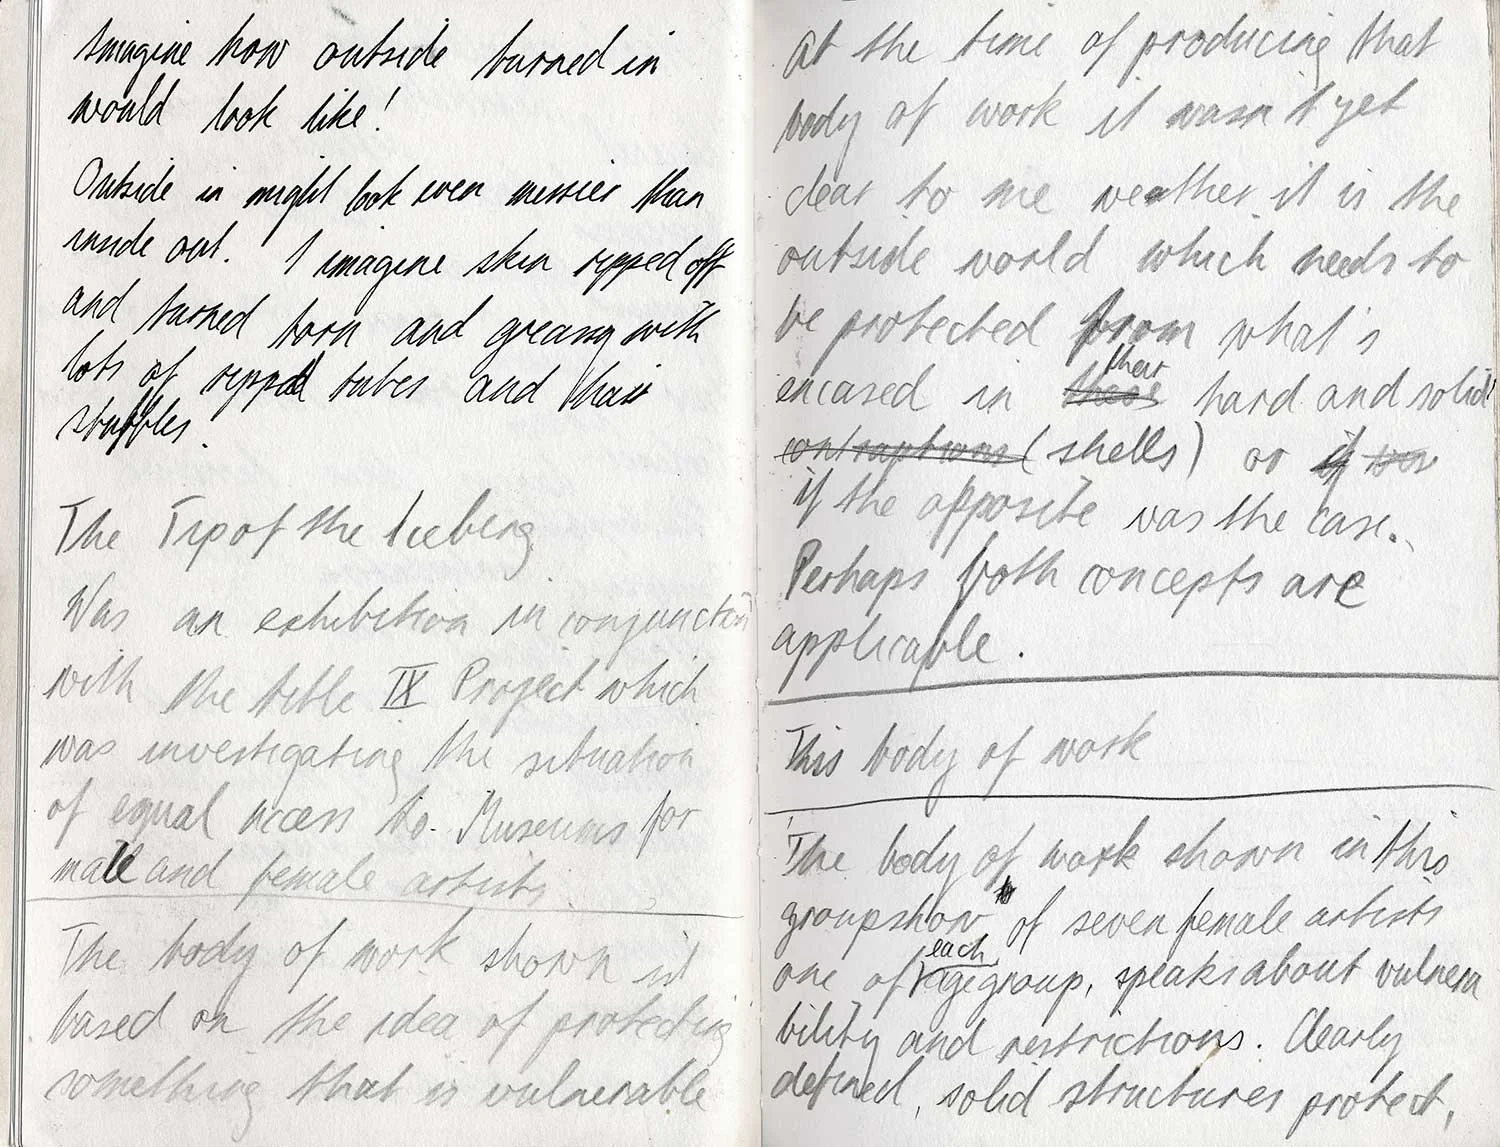 Imagine how outside turned in
would look like!
Outside in might look even messier than
inside out. I imagine skin ripped off
and turned torn and greasy with
lots of ripped tubes and hair
stubbles.
The Tip of the Iceberg
Was an exhibition in conjunction
with the title IX Project which
was investigating the situation
of equal access to Museums for
male and female artists
The body of work shown is
based on the idea of protecting
something that is vulnerable
at the time of producing that
body of work it wasn't yet
clear to me weather it is the
outside world which needs to
be protected from what's
encased in these their hard and solid
contraptions (shells) or if
if the opposite was the case.
Perhaps both concepts are
applicable.
This body of work
The body of work shown in this
groupshow of seven female artists
one of each agegroup, speaks about vulnera
bility and restrictions. Clearly
defined, solid structures protect,